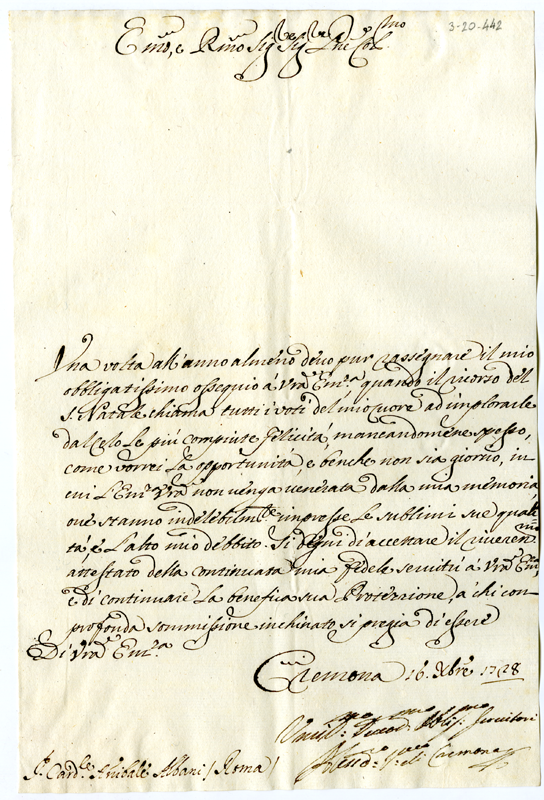 3-20-442
Em̃o, e Rm̃o Sig.r Sig.r Pñe Col.mo
Una volta all'anno almeno devo pur rassegnare il mio
obbligatissimo ossequio à Vr̃a Em.a quando il ricorso del
S. Natale chiama tutti i voti del mio cuore ad implorarle
dal Celo le più compiute felicità, mancandomene spesso,
come vorrei la opportunità, e benche non sia giorno, in
cui l'Em.a Vr̃a non venga venerata dalla mia memoria
ove stanno indelebilm.te impresse le sublimi sue quali-
tà, e l'alto mio debbito. Si degni di accettare il riveren.mo
attestato della continuata mia fedele servitù à Vr̃a Em.a,
e di continuare la benefica sua Protezzione, à chi con
profonda sommissione inchinato si pregia di essere
Di Vr̃a Em.a
Cremona 16. Xbre 1728
Umil.mo Devot.mo Obblig.mo Servitore
Cremona
S.r Card.le Anibale Albani / Roma /